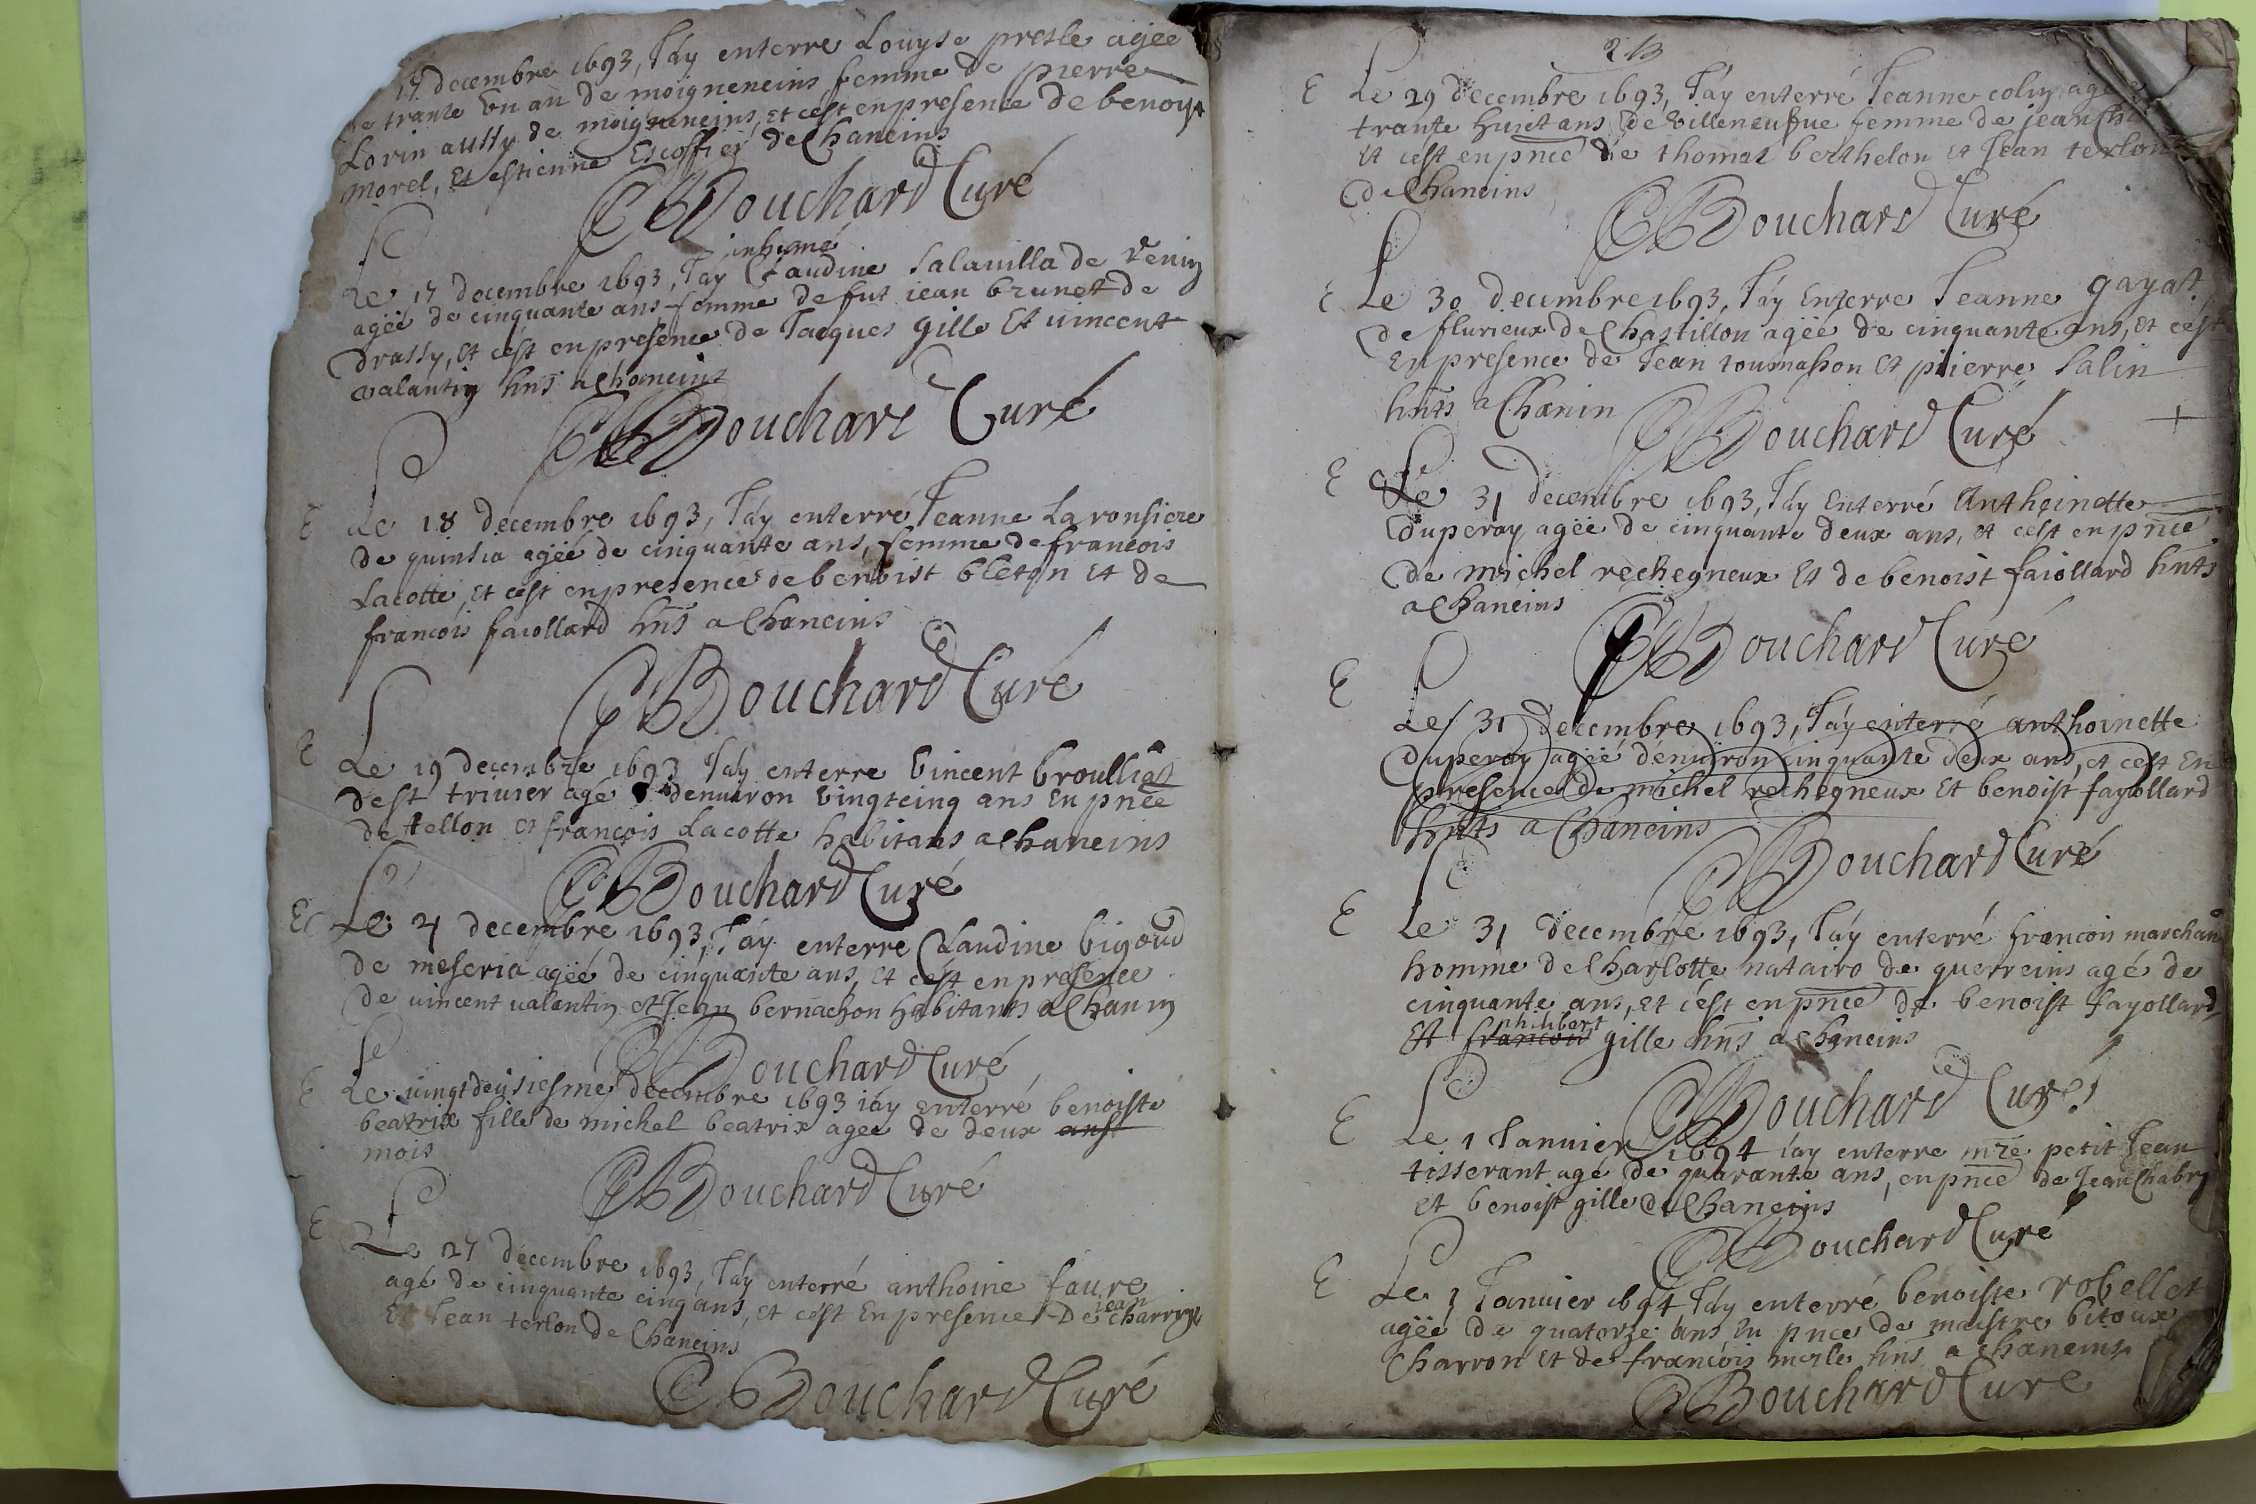 decembre 1693, Jay enterre Louyse presle agée
de trante un an de moigneneins, femme de pierre
Lorin aussy de moigneneins, et cest en presence de benoyt
morel, Et estienne Escoffier de Chaneins
Bouchard Curé
inhumé
Le 17 decembre 1693, Jay Claudine Salauilla de
ageé de cinquante ans femme de fut jean brunet de
drassy, et cést en presence de Jacques gille Et uincent
valantin hns a Chaneins
Bouchard Curé
E Le 18 decembre 1693, Jáy enterré Jeanne La ronsiere
de quinsia ageé de cinquante ans, femme de francois
Lacotte, et cést en presence de benoist bleton et de
francois faiollard hns a Chaneins
Bouchard Curé
E Le 19 decembre 1693 Jáy enterre Vincent broulliat
dest triuier agé denuiron vingt cinq ans En pnce
de tellon et francois Lacotte habitans a Chaneins
Bouchard Curé
E Le 21 decembre 1693, Jay enterre Claudine bigoud
de meseria ageé de cinquante ans, et cest en presence
de uincent ualantin et Jean bernachon habitants a Chanin
Bouchard Curé
E Le uingt deusiesme decembre 1693 iáy enterré benoiste
beatrix fille de michel beatrix agee de deux ans
mois
Bouchard Curé
E Le 27 decembre 1693, Jáy enterré anthoine faure
agé de cinquante cinq ans, et cést En presence De jean charriÿn
Et Jean terlon de Chaneins
Bouchard Curé
E Le 29 decembre 1693, Jáy enterré Jeanne coliy
trante huict ans de villeneufue femme de jean
et cést en pnce de thomas berthelon et Jean terlon
de Chaneins
Bouchard Curé
E Le 30 decembre 1693, Jáy Enterre Jeanne gayat
de flurieux de Chastillon ageé de cinquante ans, et cést
En presence de Jean tournasson et pierre Salin
hnts a Chanin
Bouchard Curé
E Le 31 decembre 1693, Jáy Enterré Anthoinette
duperay ageé de cinquante deux ans, et cest en pnce
de michel rechegneux Et de benoist faiollard hnts
a Chaneins
Bouchard Curé
E Le 31 decembre 1693, Jáy enterré anthoinette
duperay ageé denuiron cinquante deux ans, et cest En
presence de michel rechegneux Et benoist fayollard
hnts a Chaneins
Bouchard Curé
E Le 31 decembre 1693, Jáy enterré francois marchan
homme de Charlotte nataire de guerreins agé de
cinquante ans, et cést en pnce de benoist fayollard
philibert
Et francois gille hns a Chaneins
Bouchard Curé
E Le 1 Januier 1694 iáy enterre mre petit Jean
tisserant agé de quarante ans, en pnce de Jean Chabry
et benoist gille de Chaneins
Bouchard Curé
E Le 3 Januier 1694 Jáy enterré benoiste robellet
ageé de quatorze ans En pnce de maistre bitoux
Charron Et de francois merle hns a Chaneins
Bouchard Curé